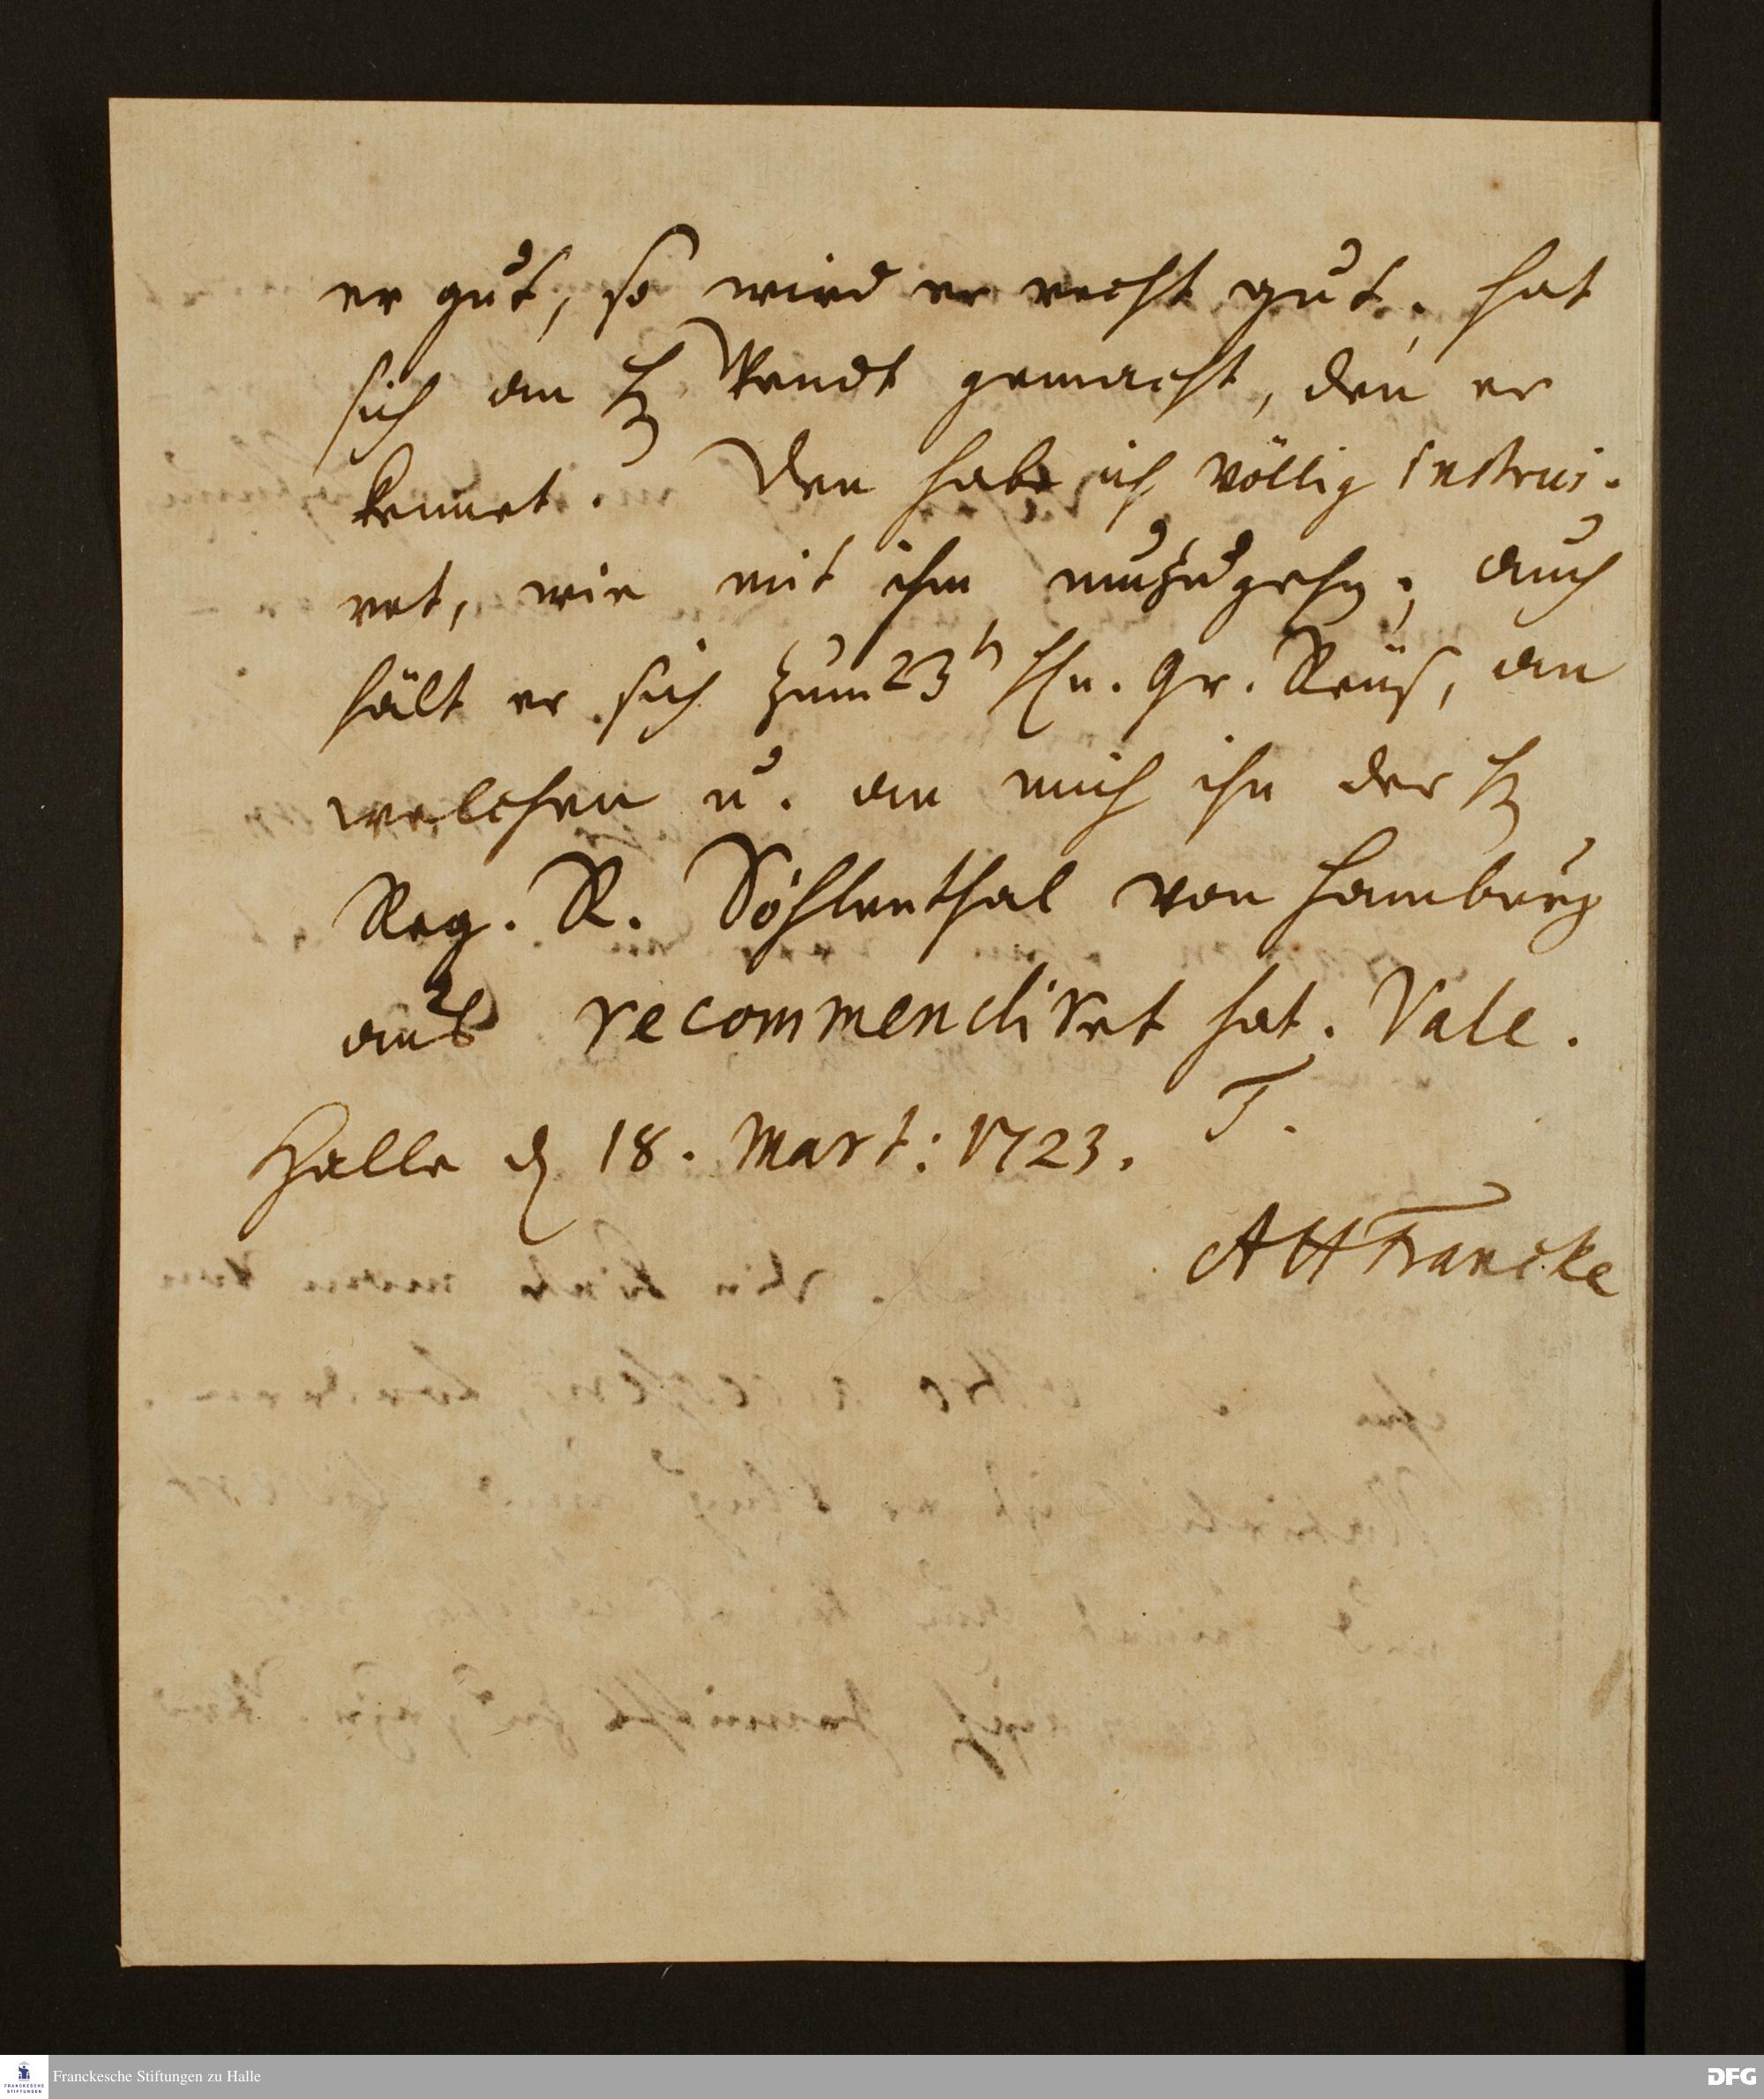 er gut, so wird er recht gut; hat
sich an H. Kendt gemacht, den er
kennet. Den habe ich völlig instrui-
ret, wie mit ihm umzugehen; auch
hält er sich zum 23 Hn. Gr. Reuß, an
welchen u. an mich ihn der H.
Reg. R. Söhlenthal von Hamburg
aus recommendiret hat. Vale.
T.
Halle d. 18. Mart: 1723.
AHFrancke
FRANCKESCHE STIFTUNGEN
Franckesche Stiftungen zu Halle
DFG